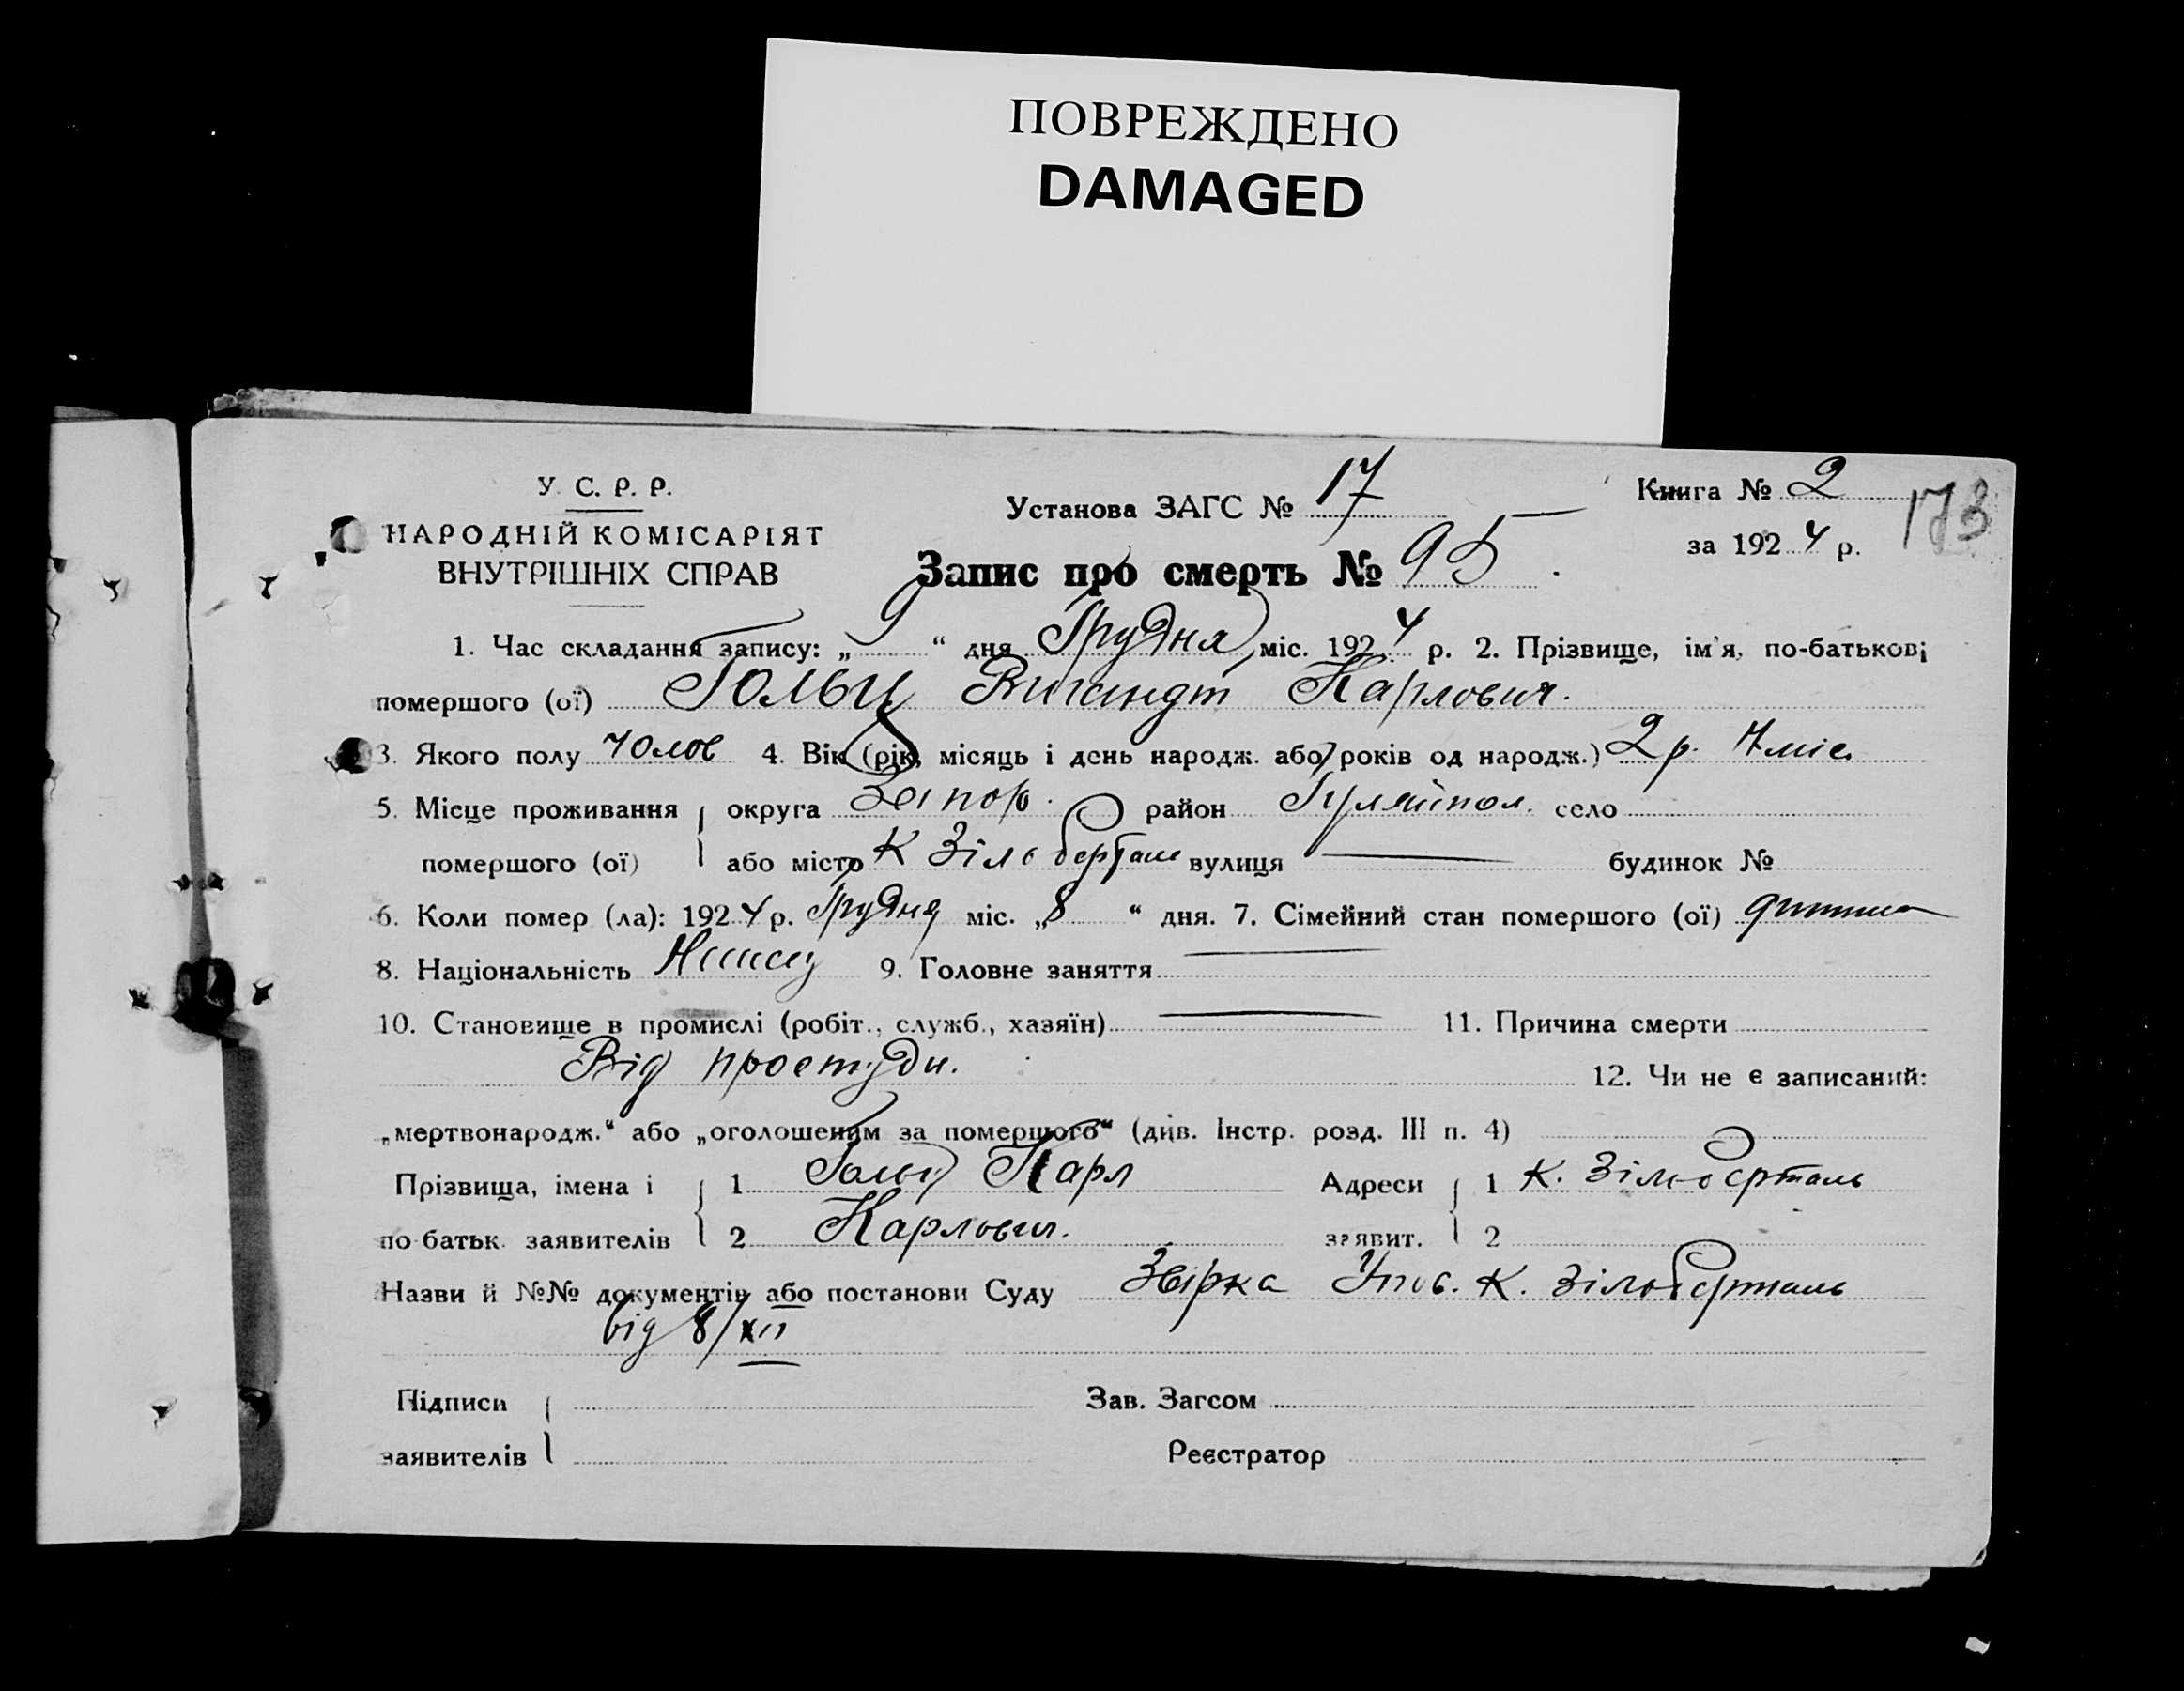 ПОВРЕЖДЕНО
DAMAGED
У. С. Р. Р.
НАРОДНІЙ КОМІСАРІЯТ
ВНУТРІШНІХ СПРАВ
Установа ЗАГС № 17
Книга № 2
173
за 1924 р.
Запис про смерть № 95
1. Час складання запису: „9“ дня Грудня міс. 1924 р. 2. Прізвище, ім'я, по-батькові
помершого (ої) Гольц Вигандт Карлович.
3. Якого полу Чолов 4. Вік (рік, місяць і день народж. або років од народж.) 2 р. 7 міс.
5. Місце проживання округа Запор. район Гуляйпол. село
помершого (ої) або місто К Зільберталь вулиця — будинок №
6. Коли помер (ла): 1924 р. Грудня міс. „8“ дня. 7. Сімейний стан помершого (ої) дитина
8. Національність Німец 9. Головне заняття —
10. Становище в промислі (робіт., служб., хазяїн) — 11. Причина смерти
Від простуди. 12. Чи не є записаний:
„мертвонародж.“ або „оголошеним за помершого“ (див. Інстр. розд. III п. 4)
Прізвища, імена і 1 Гольц Карл Адреси 1 К. Зільберталь
по батьк. заявителів 2 Карлович. заявит. 2
Назви й №№ документів або постанови Суду К. Зільберталь
від 8/XII
Підписи Зав. Загсом
заявителів Реєстратор